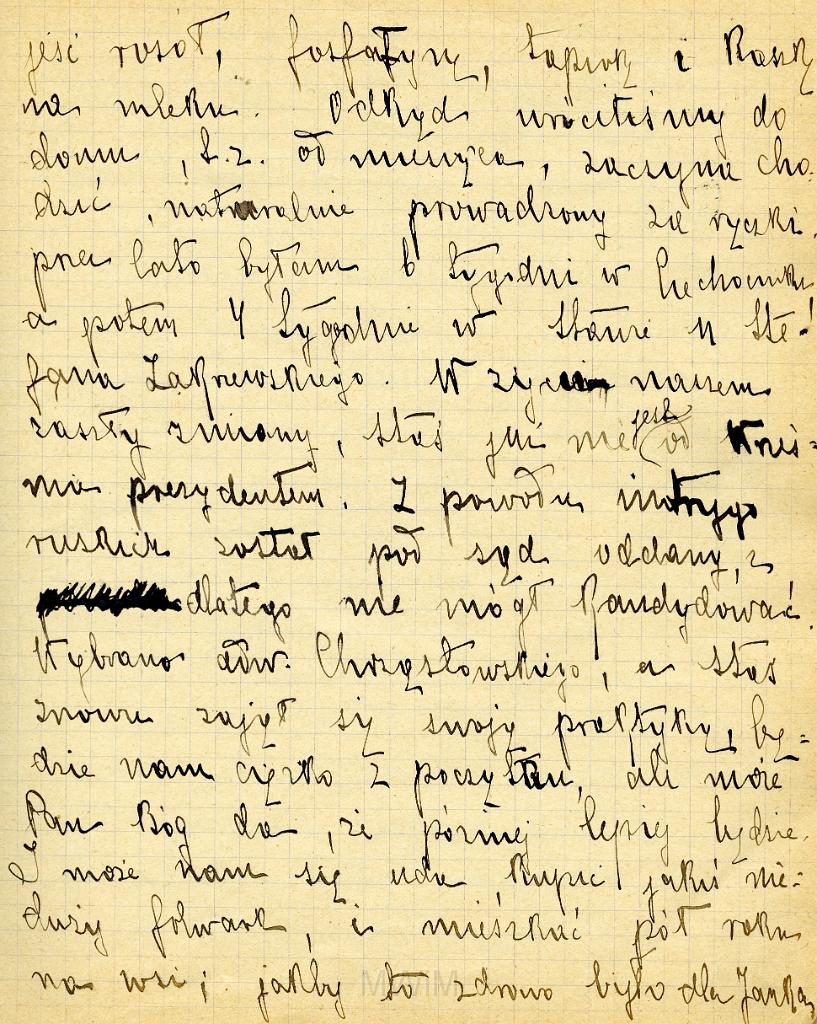 jeść rosół, fosfatynę, tapiokę i kaszkę
na mleku. Odkąd wróciliśmy do
domu, t.z. od miesiąca, zaczyna cho-
dzić, naturalnie prowadzony za rączki.
przez lato byłam 6 tygodni w Ciechocinku
a potem 4 tygodnie w u Ste-
fana Zakrzewskiego. W życiu naszem
zaszły zmiany, Staś już nie jest od
prezydentem. Z powodu intrygi
ruskich został pod sąd oddany, i
dlatego nie mógł kandydować.
Wybrano adw. Chrząstowskiego, a Staś
znowu zajął się swoją praktyką, bę=
dzie nam ciężko z początku, ale może
Pan Bóg da, że później lepiej będzie.
I może nam się uda kupić jakiś nie=
duży folwark, i mieszkać pół roku
na wsi; jakby to zdrowo było dla Janka,
MWiM